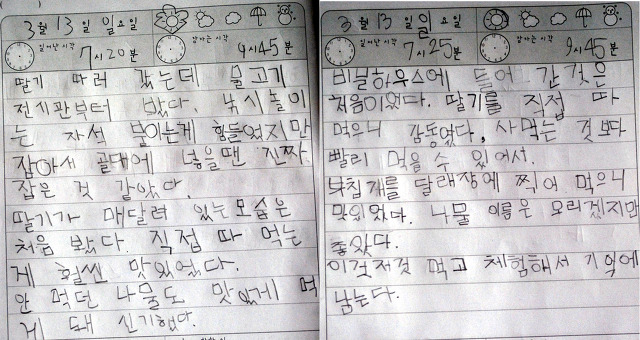 3월 13일 일요일
일어난 시각
7시 20분
잠자는 시각
9시 45분
딸기 따러 갔는데 물고기
전시관부터 봤다. 낚시놀이
는 자석 붙이는게 힘들었지만
잡아서 골대에 넣을땐 진짜
잡은 것 같았다.
딸기가 매달려 있는모습은
처음 봤다. 직접 따 먹는
게 훨씬 맛있었다.
안 먹던 나물도 맛있게 먹
게 돼 신기했다.
3월 13일 일요일
일어난 시각
7시 25분
잠자는 시각
9시 45분
비닐하우스에 들어 간것은
처음이었다. 딸기를 직접 따
먹으니 감동였다, 사먹는 것보다
빨리 먹을 수 있어서.
부침개를 달래장에 찍어 먹으니
맛있었다. 나물 이름은 모르겠지만
좋았다.
이것저것 먹고 체험해서 기억에
남는다.